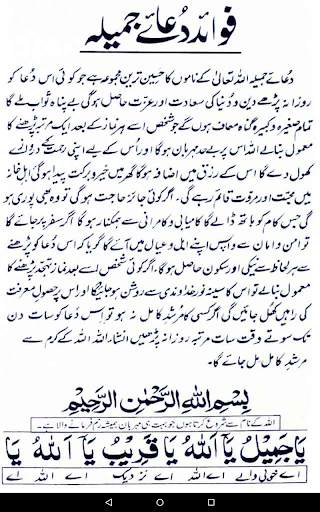 فوائد دُعائے جمیلہ
دُعائے جمیلہ اللہ تعالیٰ کے ناموں کا حسین ترین مجموعہ ہے جو کوئی اس دُعا کو
روزانہ پڑھے دین و دُنیا کی سعادت اور عزّت حاصل ہو گی بے پناہ ثواب ملے گا
تمام صغیرہ و کبیرہ گناہ معاف ہوں گے جو شخص اسے ہر نماز کے بعد ایک مرتبہ پڑھنے کا
معمول بنا لے اللہ اس پر بے حد مہربان ہو گا اور اُس کے لئے اپنی رحمت کے دروازے
کھول دے گا اس کے رزق میں اضافہ ہو گا گھر میں خیر و برکت پیدا ہو گی اہلِ خانہ
میں محبّت اور مروّت قائم رہے گی۔ اگر کوئی جائز حاجت ہو گی تو وہ بھی پوری ہو
گی جس کام کو ہاتھ ڈالے گا کامیابی و کامرانی سے ہمکنار ہو گا اگر سفر پر جائے گا
تو امن و امان سے واپس اپنے اہل و عیال میں آئے گا گویا کہ اس دُعا کو پڑھنے
سے ہر لحاظ سے نیکی اور سکون حاصل ہو گا۔ اگر کوئی شخص اسے بعد نمازِ تہجّد پڑھنے کا
معمول بنا لے تو اس کا سینہ نور خداوندی سے روشن ہو جائیگا اور اس پر حصولِ معرفت
کی راہیں کھل جائیں گی اگر کسی کو مرشد کامل نہ ملا ہو تو بس دُعا کو سات دن
تک سوتے وقت سات مرتبہ روزانہ پڑھیں انشاء اللہ اللہ کے کرم سے
مرشدِ کامل مل جائے گا۔
بِسْمِ اللهِ الرَّحْمٰنِ الرَّحِيْمِ
اللہ کے نام سے شروع کرتا ہوں جو بہت ہی مہربان ہمیشہ رحم فرمانے والا ہے۔
يَا جَمِيْلُ يَا اَللهُ يَا قَرِيْبُ يَا اَللهُ يَا
اے خوبی والے اے اللہ اے نزدیک اے اللہ اے